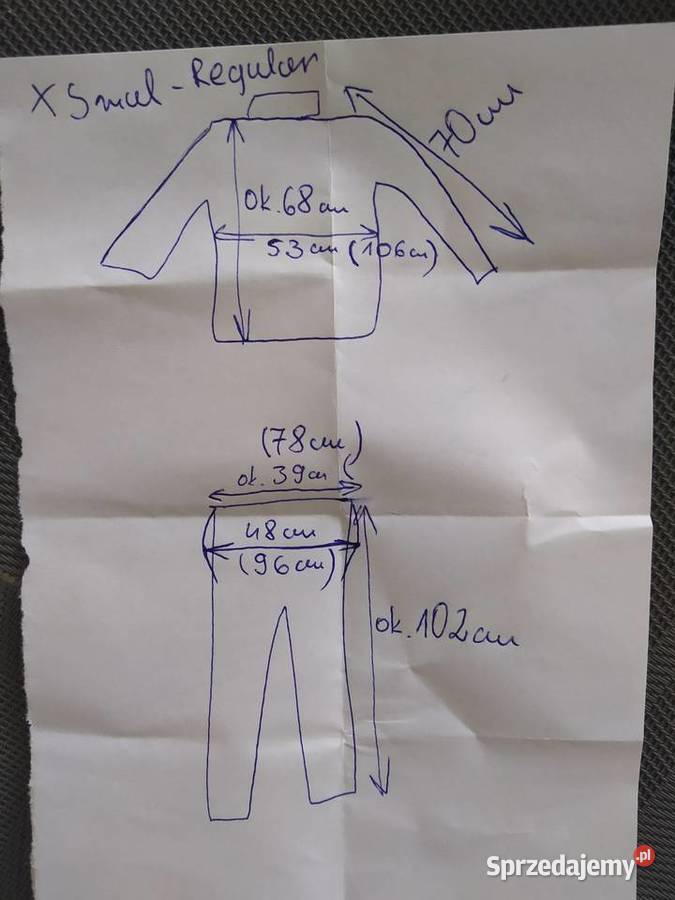 X Smal - Regular
70cm
ok. 68cm
53cm (106cm)
(78cm)
ok. 39cm
48cm
(96cm)
ok. 102cm
Sprzedajemy.pl